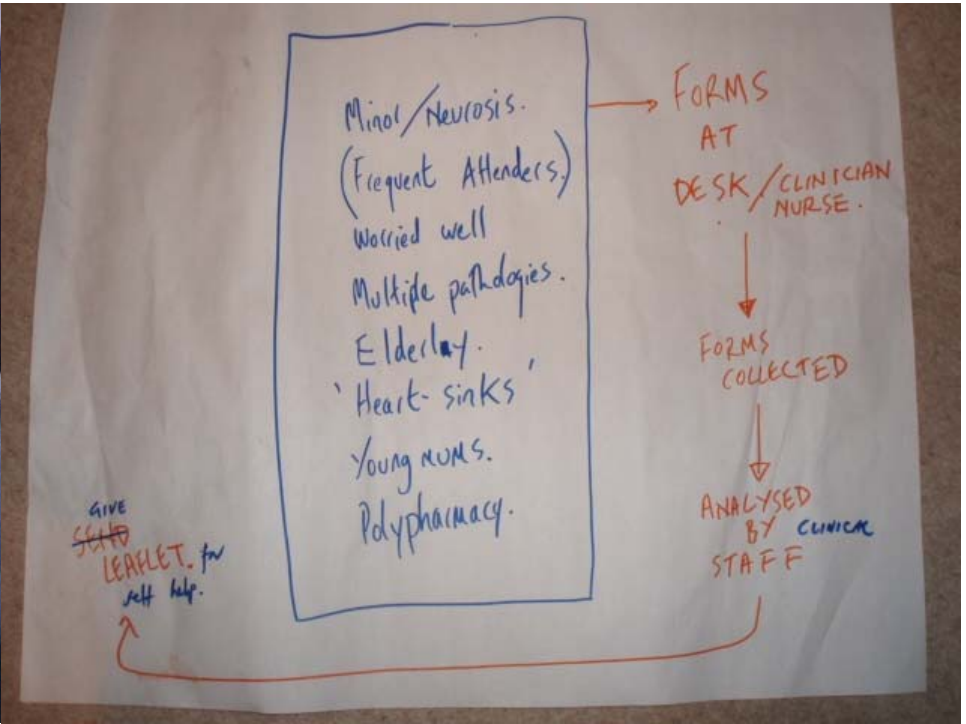 Minor/Neurosis.
(Frequent Attenders.)
Worried well
Multiple pathologies.
Elderlay.
'Heart-sinks'
Young mums.
Polypharmacy.
FORMS
AT
DESK/CLINICIAN
NURSE.
FORMS
COLLECTED
ANALYSED
BY CLINICAL
STAFF
GIVE
SEND
LEAFLET. for
self help.